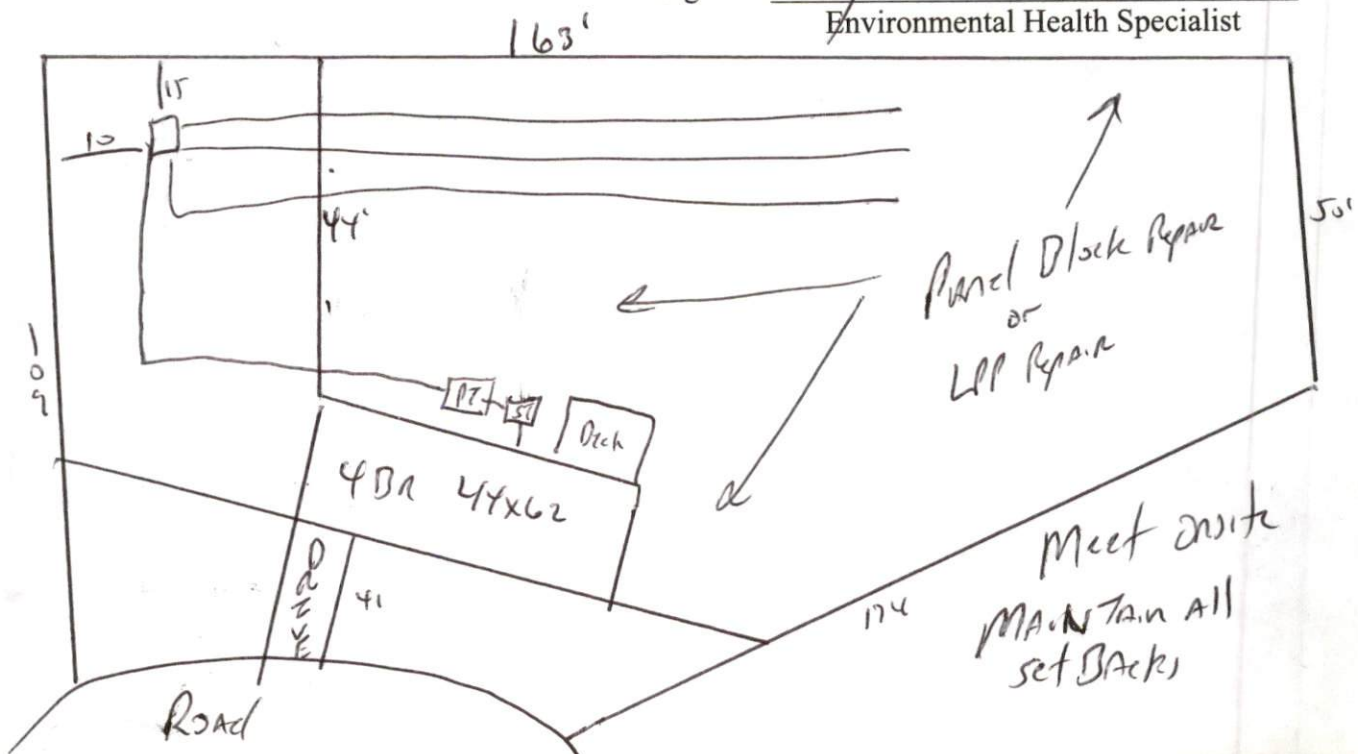 Environmental Health Specialist
163'
15
10
44'
50'
Panel Block Repair
or
LPP Repair
109
PT
ST
Deck
4BR 44x62
DRIVE
41
174
Meet onsite
MAINTAIN All
setBACKS
ROAD